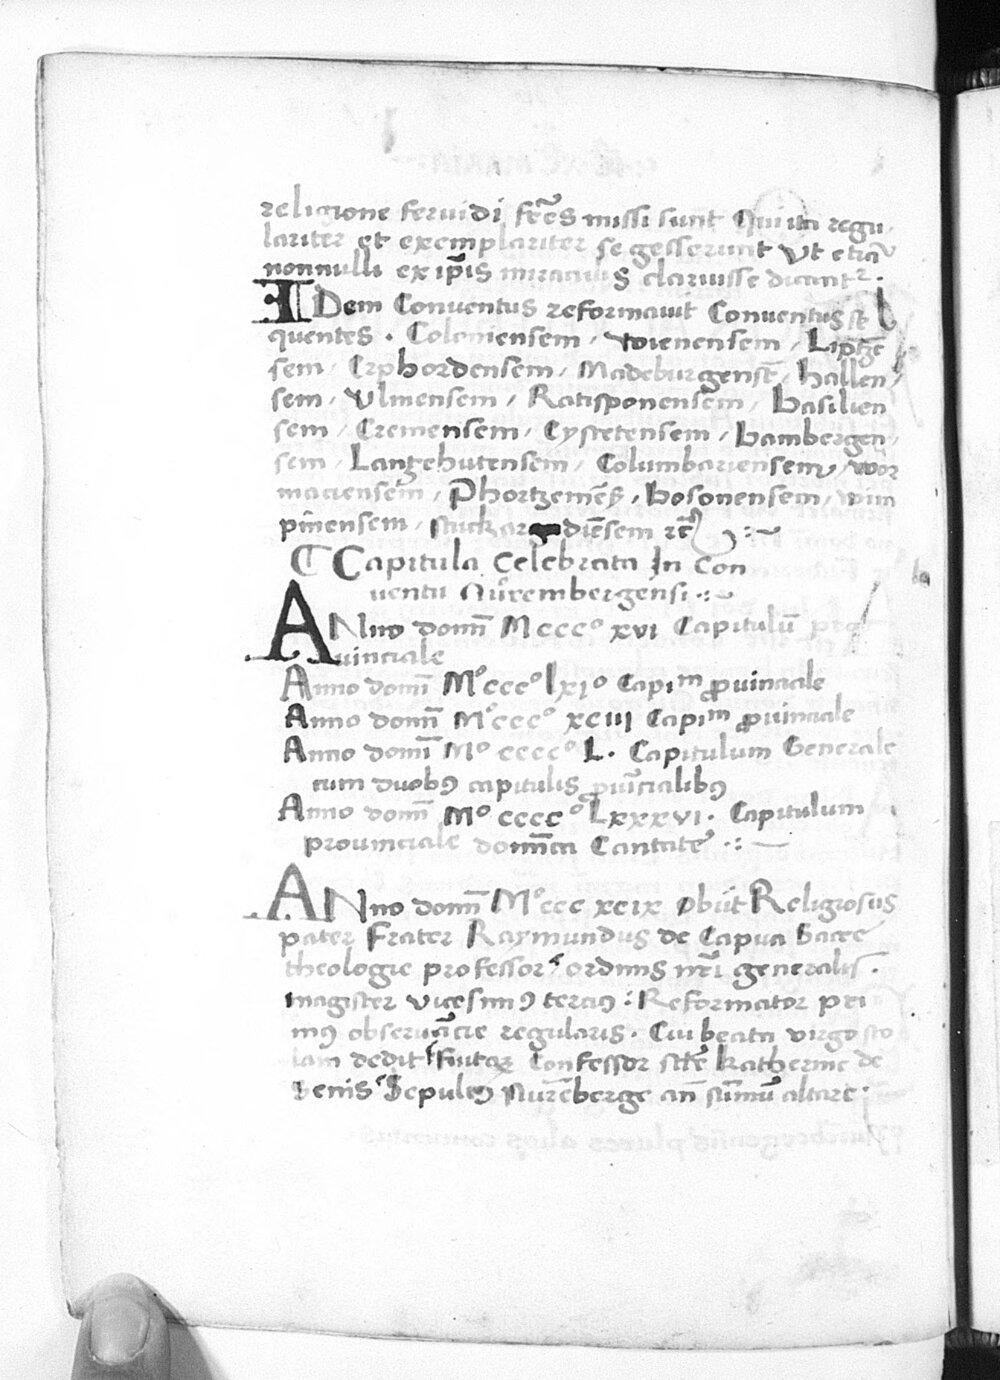 religione feruidi fr̄es missi sunt Qui ita regu,
lariter et exemplariter se gesserunt Vt etiā
nonnulli ex ip̄is miraculis claruisse dicunt᷑.
IDem Conuentus reformauit Conuentus se
quentes . Coloniensem / wienensem / Liptze
sem / Erphordensem / Madeburgensē / hallen
sem / Vlmensem / Ratisponensem / Basilien
sem / Cremensem / Eystetensem / Bambergen,
sem / Langehutensem / Columbariensem / wor
maciensem / Phortzemēs / Bosonensem / wim
pinensem / stuckar diēsem rc̄
¶ Capitula Celebrata In Con
uentu Nūrembergensi .:~
ANno domī Mcccͦ xvi Capitulū pro
uinciale
Anno domī Mͦ cccͦ lxiͦ Capiᵐ ꝓuinciale
Anno domī Mͦ cccͦ xciii Capiᵐ ꝓuinciale
Anno domī Mͦ ccccͦ L . Capitulum Generale
cum duobꝰ capitulis ꝓuīcialibꝰ
Anno domī Mͦ ccccͦ Lxxxvi . Capitulum
prouinciale domīca Cantate .:~
ANno domī Mͦ ccc xcix Obiit Religiosus
pater Frater Raymundus de Capua Sacre
theologie professor / ordinis nr̄i generalis .
magister vicesimꝰ terciꝰ : Reformator pri
mꝰ obseruācie regularis . Cui beata virgo sto
lam dedit Confessor sct̄e Katherine de
Senis Sepultꝰ Nurēberge an̄ sūmū altare :